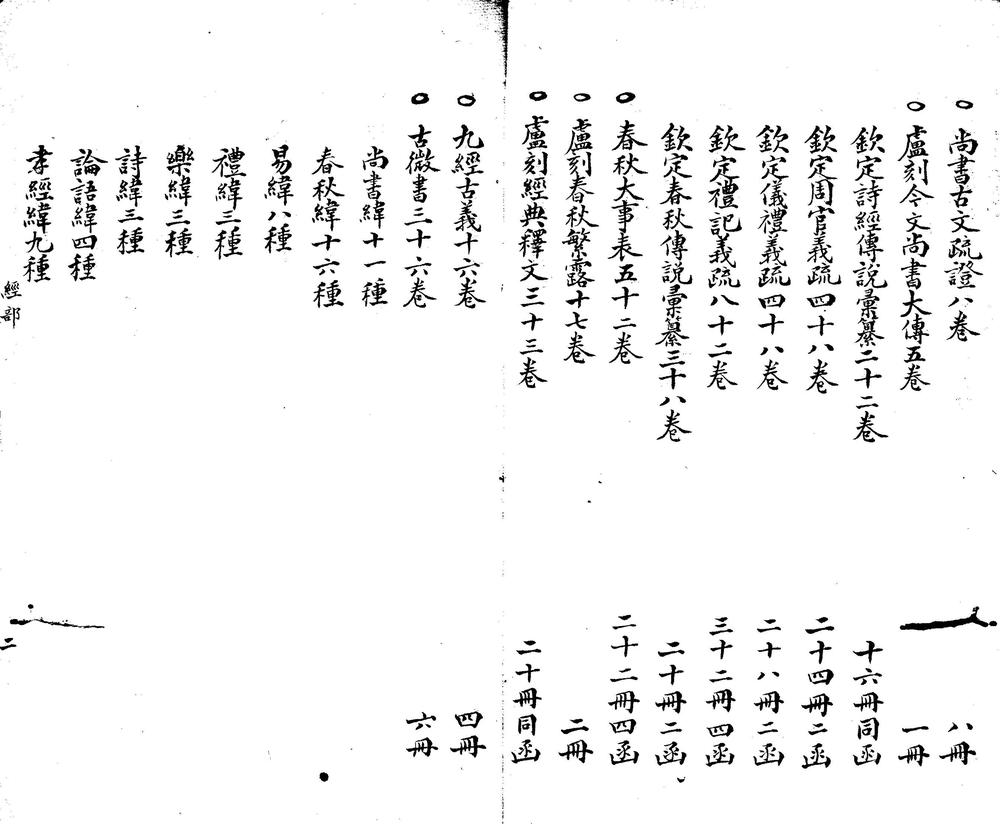 ○尚書古文疏證八卷 八冊
○盧刻今文尚書大傳五卷 一冊
欽定詩經傳說彙纂二十二卷 十六冊同函
欽定周官義疏四十八卷 二十四冊二函
欽定儀禮義疏四十八卷 二十八冊二函
欽定禮記義疏八十二卷 三十二冊四函
欽定春秋傳說彙纂三十八卷 二十冊二函
○春秋大事表五十二卷 二十二冊四函
○盧刻春秋繁露十七卷 二冊
○盧刻經典釋文三十三卷 二十冊同函
○九經古義十六卷 四冊
○古微書三十六卷 六冊
尚書緯十一種
春秋緯十六種
易緯八種
禮緯三種
樂緯三種
詩緯三種
論語緯四種
孝經緯九種
經部
二